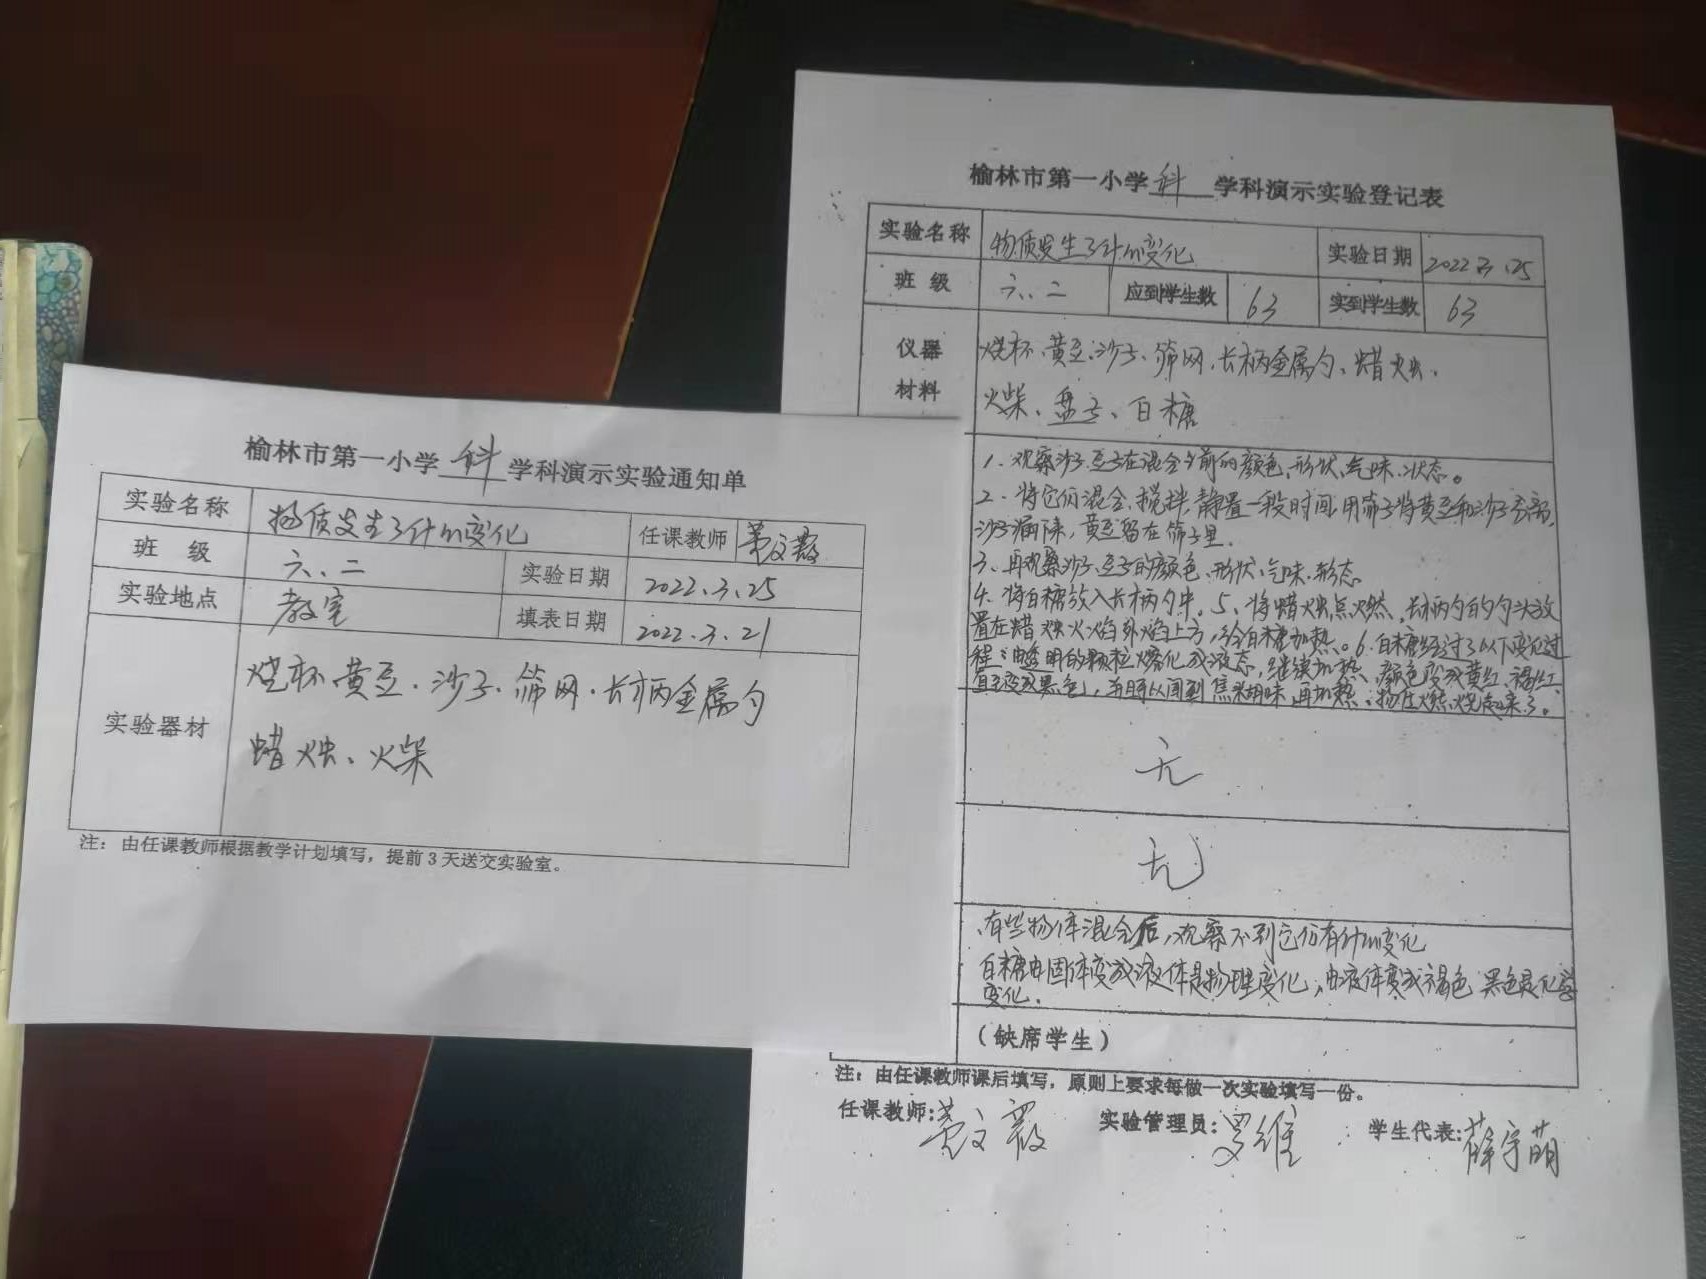 榆林市第一小学 科 学科演示实验通知单
实验名称 物质发生了什么变化 任课教师
班 级 六、二 实验日期 2022.3.25
实验地点 教室 填表日期 2022.3.21
实验器材
烧杯、黄豆、沙子、筛网、长柄金属勺
蜡烛、火柴
注：由任课教师根据教学计划填写，提前3天送交实验室。
榆林市第一小学 科 学科演示实验登记表
实验名称 物质发生了什么变化 实验日期 2022.3.25
班 级 六、二 应到学生数 63 实到学生数 63
仪器
材料
烧杯、黄豆、沙子、筛网、长柄金属勺、蜡烛、
火柴、盘子、白糖
1、观察沙子、豆子在混合之前的颜色、形状、气味、状态。
2、将它们混合、搅拌，静置一段时间，用筛子将黄豆和沙子分离，
沙子漏下来，黄豆留在筛子里。
3、再观察沙子、豆子的颜色、形状、气味、形态
4、将白糖放入长柄勺中。5、将蜡烛点燃，长柄勺的勺头放
置在蜡烛火焰外焰上方，给白糖加热。6、白糖经过了以下变化过
程：由透明的颗粒熔化成液态，继续加热，颜色变成黄红、褐红、
直至变成黑色，并可以闻到焦糊味，再加热，物体燃烧起来了。
无
无
有些物体混合后，观察不到它们有什么变化
白糖由固体变成液体是物理变化，由液体变成褐色、黑色是化学
变化。
（缺席学生）
注：由任课教师课后填写，原则上要求每做一次实验填写一份。
任课教师： 实验管理员：罗维 学生代表：薛宇萌